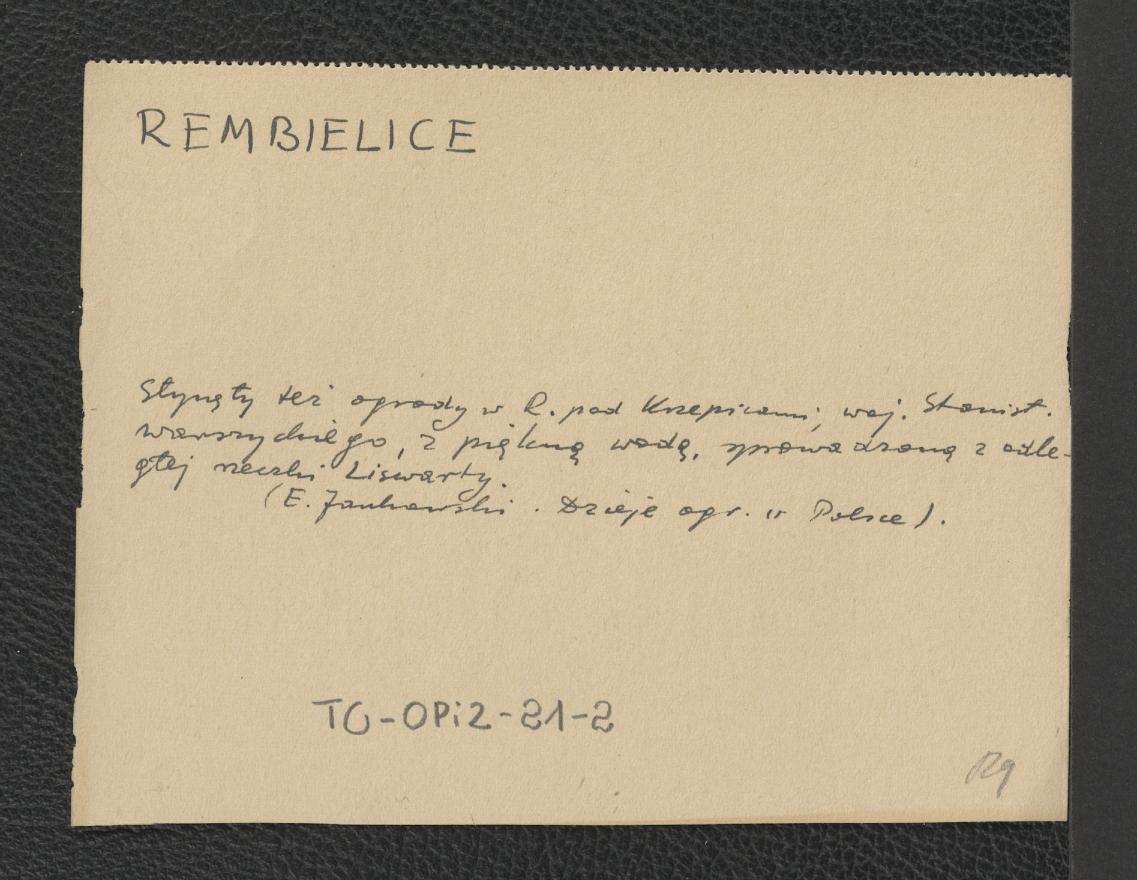 REMBIELICE
Słynęły też ogrody w R. pod Krzepicami, woj. Stanisł.
Warszyckiego, z piękną wodą, sprowadzoną z odle-
głej rzeczki Liswarty.
(E. Jankowski. Dzieje ogr. w Polsce).
TG-OPiZ-21-2
129